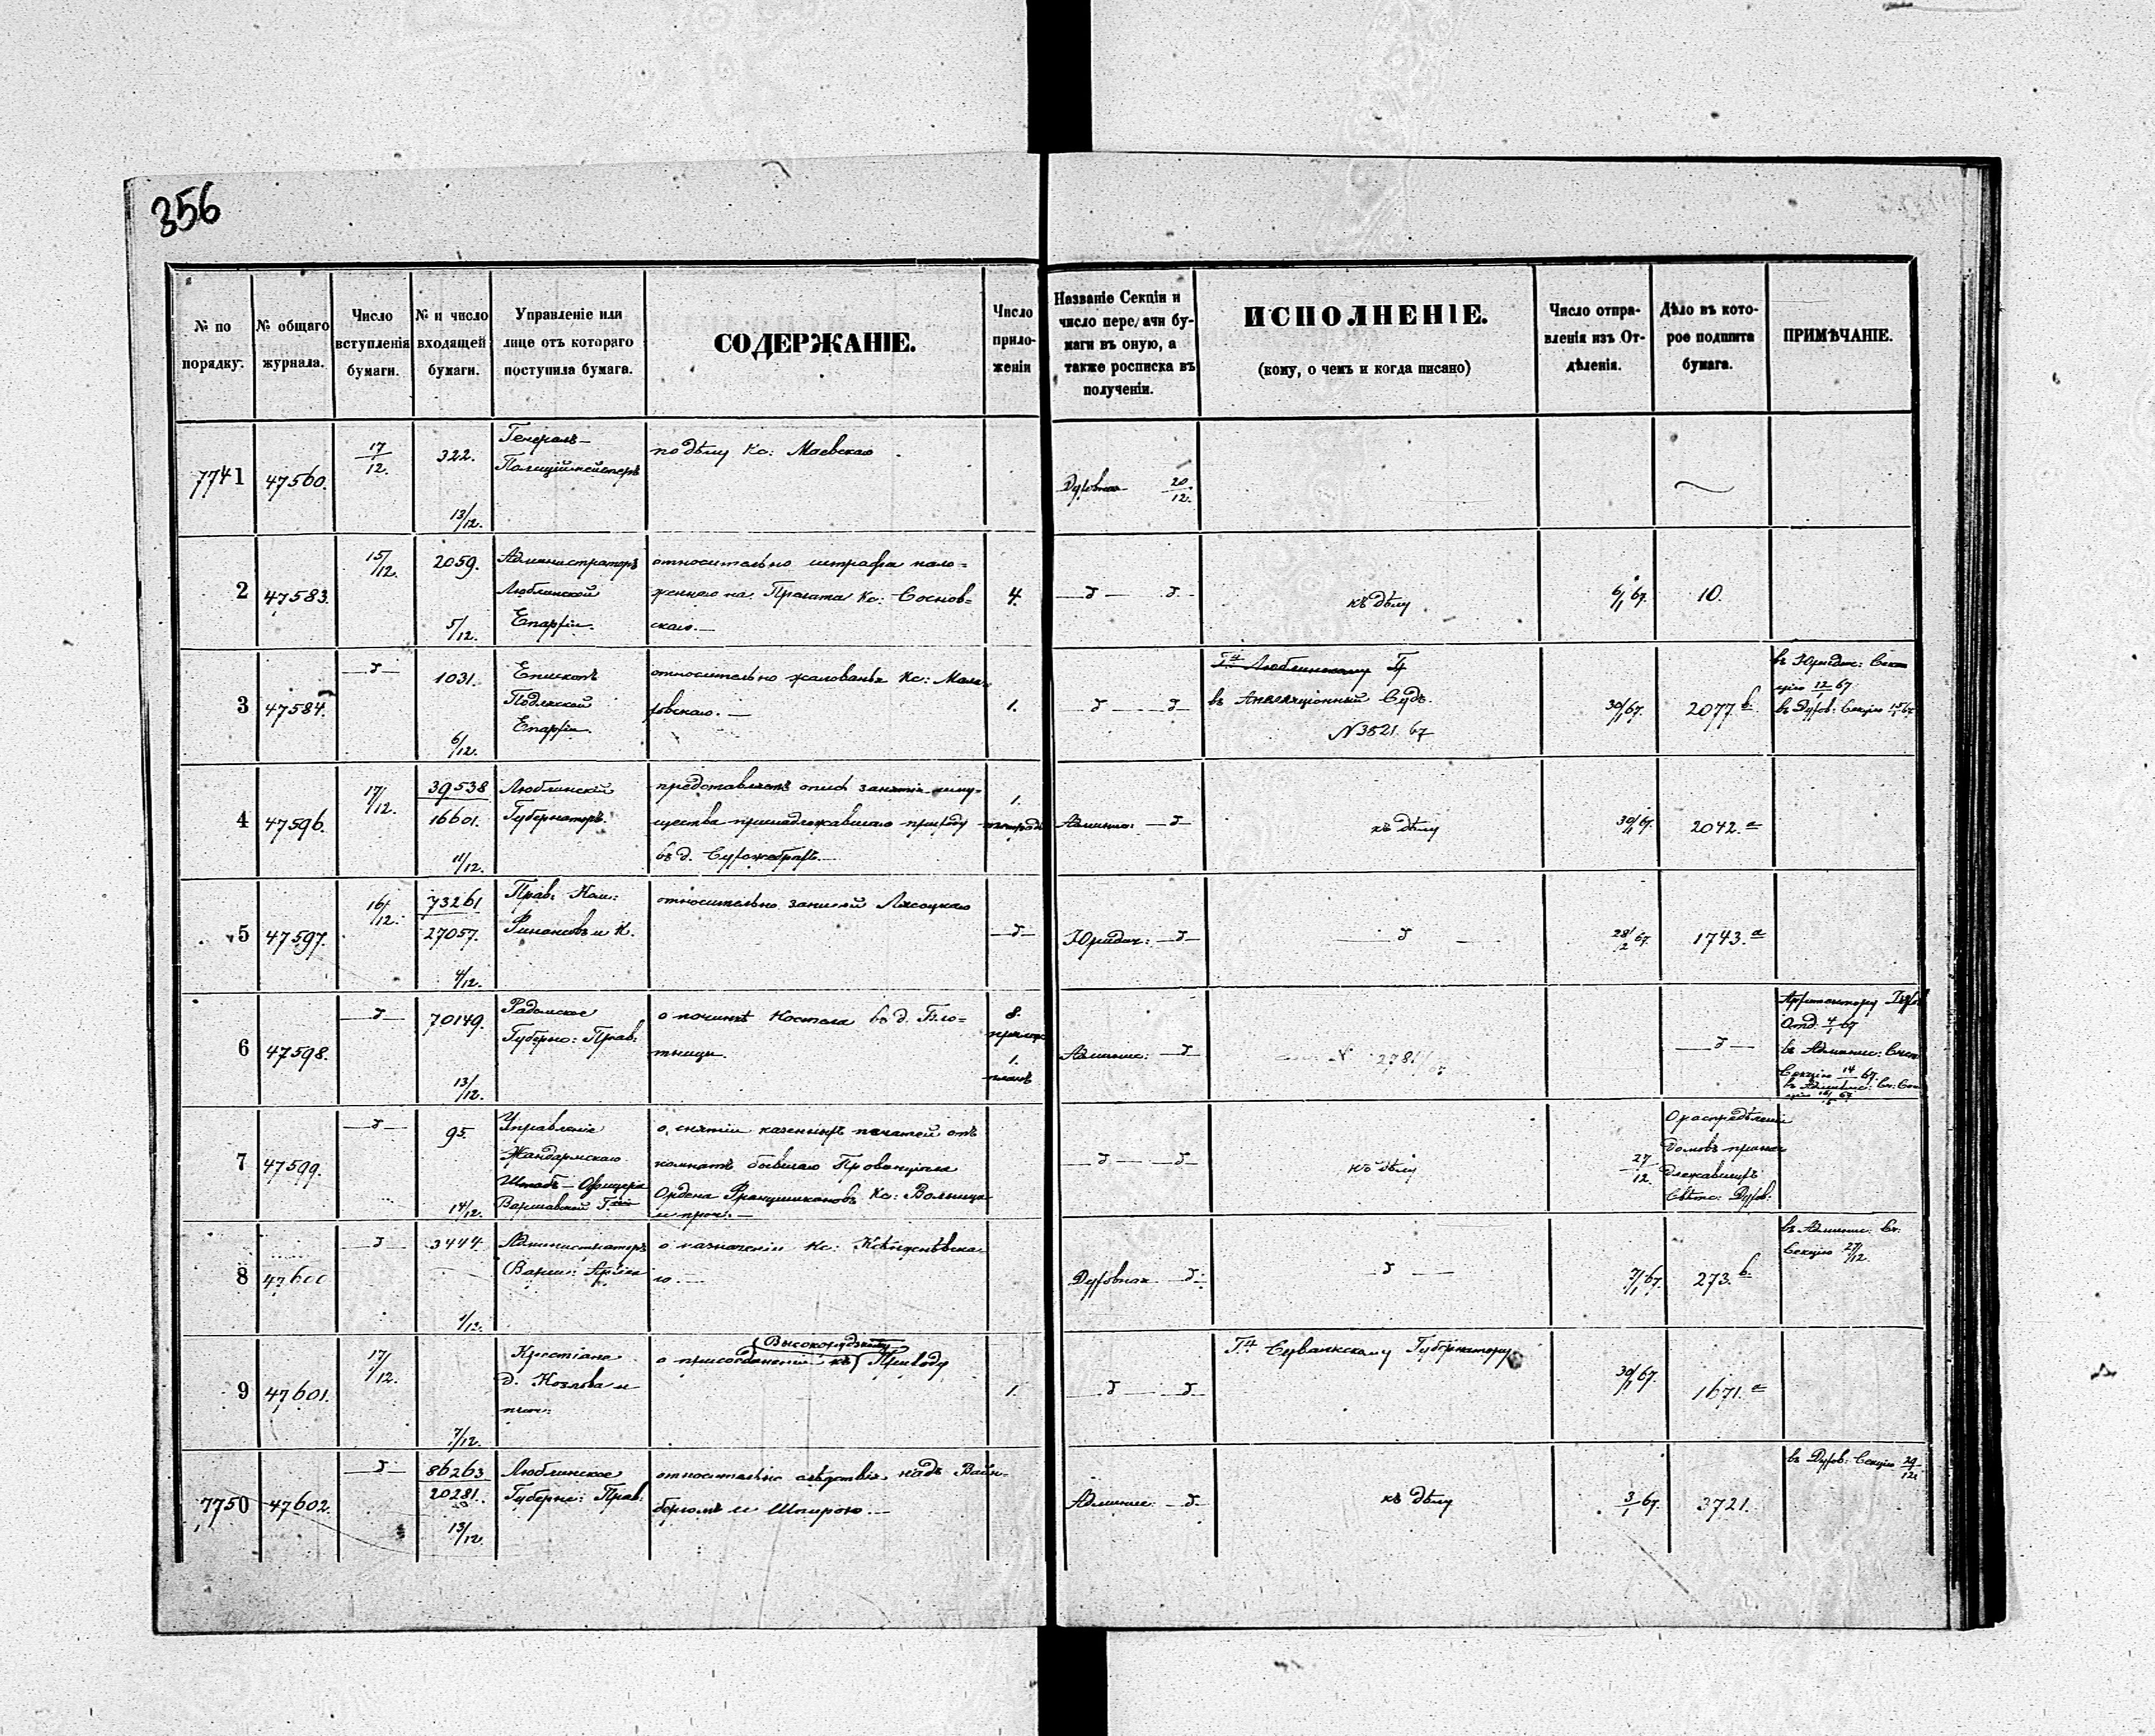 356
№ по порядку.
№ общаго журнала.
Число вступленія бумаги.
№ и число входящей бумаги.
Управленіе или лице отъ котораго поступила бумага.
СОДЕРЖАНІЕ.
Число приложеній
Названіе Секціи и число передачи бумаги въ оную, а также росписка въ полученіи.
ИСПОЛНЕНІЕ.
(кому, о чемъ и когда писано)
Число отправленія изъ Отдѣленія.
Дѣло въ которое подшита бумага.
ПРИМѢЧАНІЕ.
7741 47560. 17/12. 322. 13/12.
Генералъ-
Полиціймейстеръ
по дѣлу Кс: Маевскаго
Духовная 20/12.
2 47583. 15/12. 2059. 5/12.
Администраторъ
Люблинской
Епархіи.
относительно штрафа нало=
женнаго на Прелата Кс: Соснов=
скаго.—
4.
къ дѣлу
6/1 67.
10.
3 47584. 1031. 6/12.
Епископъ
Подляской
Епархіи.
относительно жалованья Кс:
1.
въ Апелляціонный Судъ.
N 3521. 67
30/1 67.
2077 b.
въ Юридич: Сек
цію 12/1 67
въ Духов: Секцію
4 47596. 17/12. 39538 16601. 11/12.
Люблинскій
Губернаторъ.
представляетъ опись
щества принадлежавшаго приходу
въ д.
1.
Админис:
къ дѣлу
30/1 67.
2042. a
5 47597. 16/12. 73261 27057. 4/12.
Прав: Ком:
Финансовъ и К.
относительно
Юридич:
28/2 67.
1743. a
6 47598. 70149. 13/12.
Радомское
Губерн: Прав:
о починкѣ Костела въ д. Бло=
тницы.
8.
1.
планъ
Админис:
Архитектору
Отд. 4/1 67
въ Админис:
Секцію 14 67.
7 47599. 95. 14/12.
Управленіе
Жандармскаго
Штабъ-Офицера
Варшавской
о снятіи казенныхъ печатей отъ
комнатъ бывшаго Провинціала
Ордена Францишкановъ Кс:
и проч.—
къ дѣлу
27/12.
О распредѣленіи
домовъ принад
лежавшихъ
Свѣтс: Духов:
8 47600 3444. 1/12.
Администраторъ
Варш:
о назначеніи Кс:
го.—
Духовная
7/1 67.
273. b.
въ Админис:
Секцію 27/12.
9 47601. 17/12. 7/12.
Крестіане
д. Козлова и
проч:
о присоединеніи къ Приходу
1.
Сувалкскому Губернатору
30/1 67.
1671. a
7750 47602. 86263 20281. 13/12.
Люблинское
Губерн: Прав:
относительно слѣдствія надъ Вайн-
бергомъ и Шпирою.—
Админис:
къ дѣлу
3/1 67.
3721.
въ Духов: Секцію 29/12.